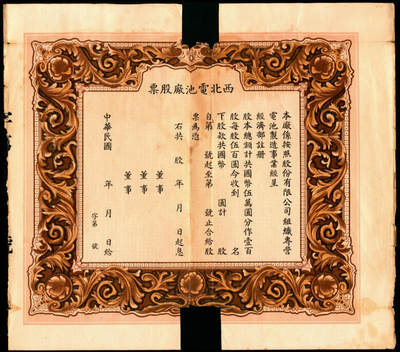 西北電池廠股票
本廠係按照股份有限公司組織專營
電池製造事業經呈
經濟部註册
股本總額計共國幣伍萬圓分作壹百
股每股伍百圓今收到 名
下股款共國幣 圓計 股
自第 號起至第 號止合給股
票為憑
右共 股 年 月 日起息
董事
董事
中華民國 年 月 日給
字第 號